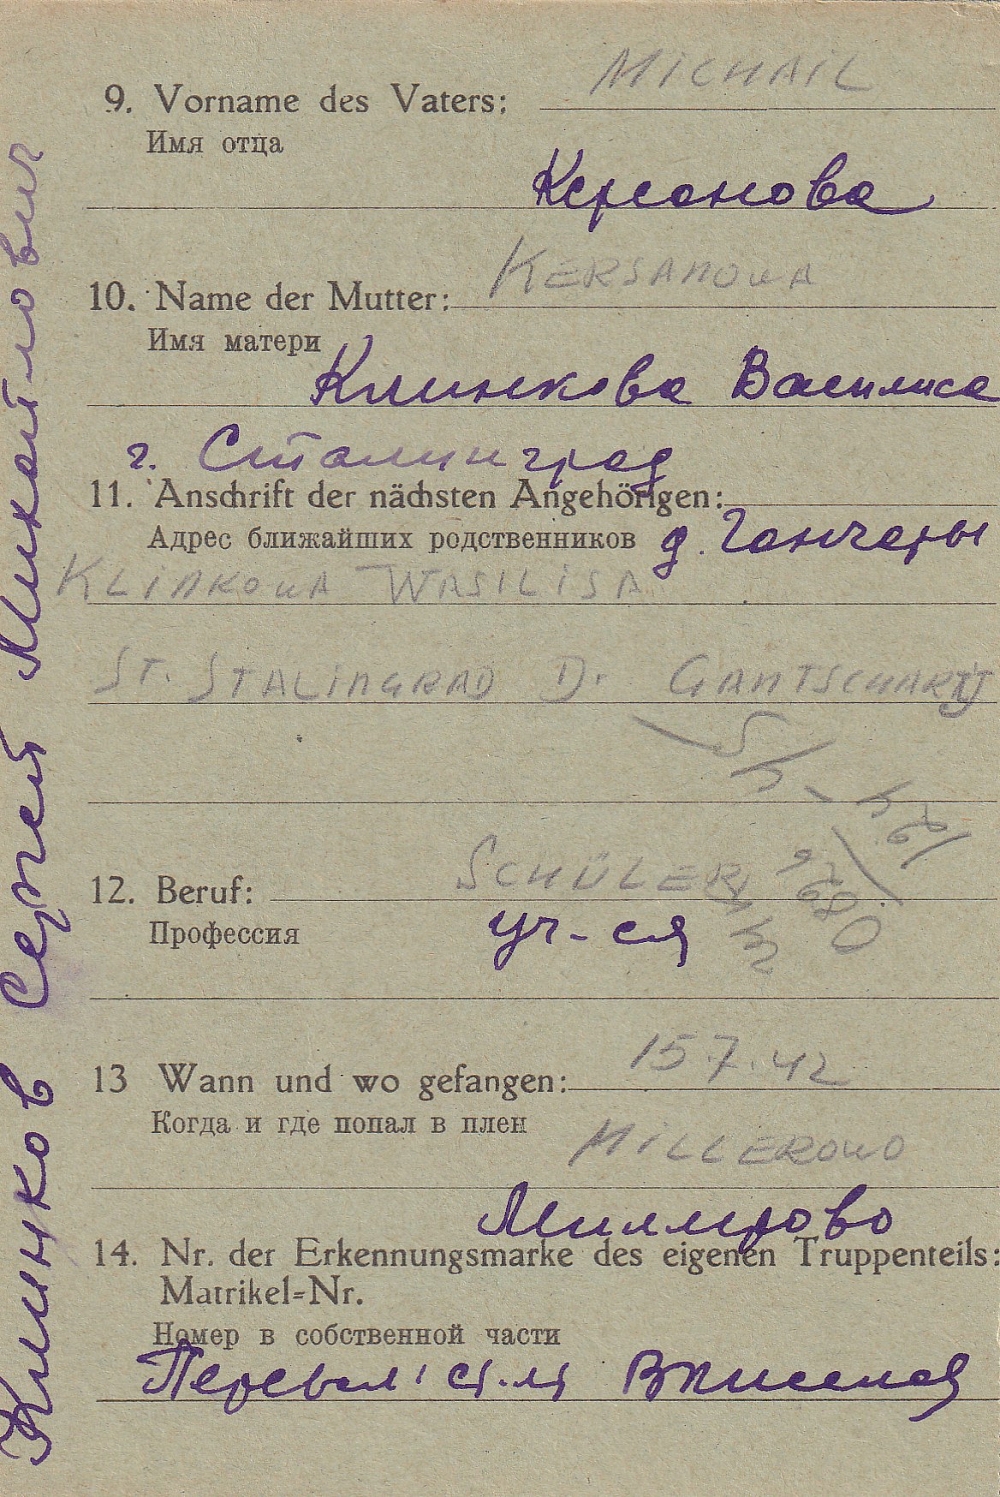 Клинков Сергей Михайлович
MICHAIL
9. Vorname des Vaters:
Имя отца
Керсанова
KERSANOWA
10. Name der Mutter:
Имя матери
Клинкова Василиса
г. Сталинград
11. Anschrift der nächsten Angehörigen:
Адрес ближайших родственников д. Ганчары
KLINKOWA WASILISA
ST. STALINGRAD D. GANTSCHARY
SCHÜLER
12. Beruf:
Профессия уч-ся
15.7.42
13 Wann und wo gefangen:
Когда и где попал в плен
MILLEROWO
Миллерово
14. Nr. der Erkennungsmarke des eigenen Truppenteils:
Matrikel=Nr.
Номер в собственной части
Перевел: